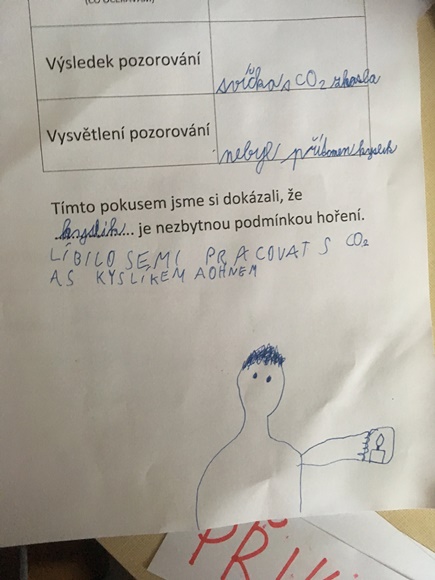 (CO OČEKÁVÁM)
Výsledek pozorování
svíčka s CO2 zhasla
Vysvětlení pozorování
nebyl přítomen kyslík
Tímto pokusem jsme si dokázali, že
kyslík... je nezbytnou podmínkou hoření.
LÍBILO SEMI PRACOVAT S CO2
AS KYSLÍKEM AOHNEM